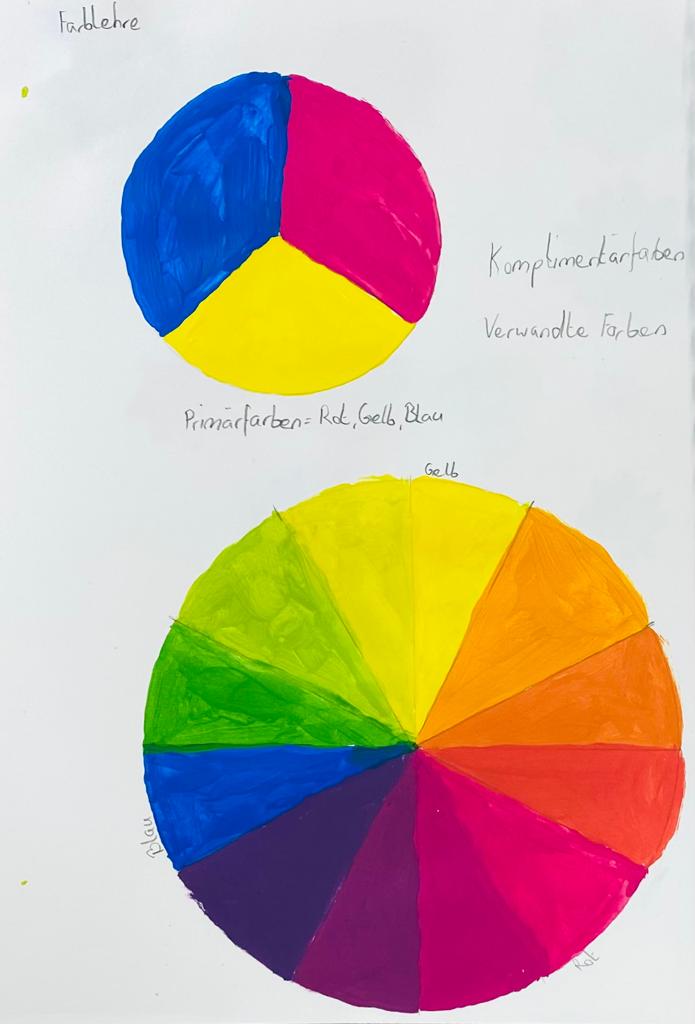 Farblehre
Komplimentärfarben
Verwandte Farben
Primärfarben= Rot, Gelb, Blau
Gelb
Blau
Rot